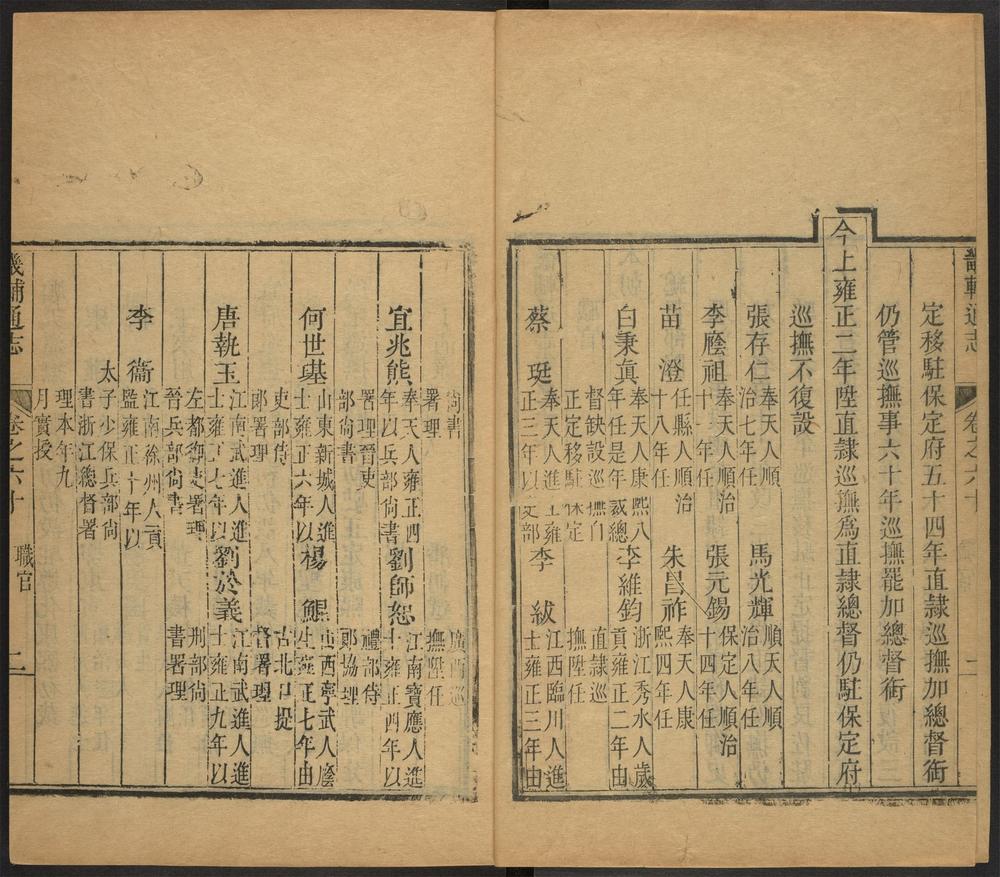 畿輔通志 卷之六十 二
定移駐保定府五十四年直隸巡撫加總督銜
仍管巡撫事六十年巡撫罷加總督銜
今上雍正二年陞直隸巡撫為直隸總督仍駐保定府
巡撫不復設
張存仁
奉天人順
治七年任
馬光輝
順天人順
治八年任
李廕祖
奉天人順治
十一年任
張元錫
保定人順治
十四年任
苗澄
任縣人順治
十八年任
朱昌祚
奉天人康
熙四年任
白秉眞
奉天人康熙八
年任是年裁總
督缺設巡撫自
正定移駐保定
李維鈞
浙江秀水人歲
貢雍正二年由
直隸巡
撫陞任
蔡珽
奉天人進士雍
正三年以吏部
李紱
江西臨川人進
士雍正三年由
尚書
署理
廣西巡
撫陞任
宜兆熊
奉天人雍正四
年以兵部尚書
署理晉吏
部尚書
劉師恕
江南寶應人進
士雍正四年以
禮部侍
郎協理
何世璂
山東新城人進
士雍正六年以
吏部侍
郎署理
楊鯤
山西寧武人廕
生雍正七年由
古北口提
督署理
唐執玉
江南武進人進
士雍正七年以
左都御史署理
晉兵部尚書
劉於義
江南武進人進
士雍正九年以
刑部尚
書署理
李衞
江南徐州人貢
監雍正十年以
太子少保兵部尚
書浙江總督署
理本年九
月實授
畿輔通志 卷之六十 職官 二